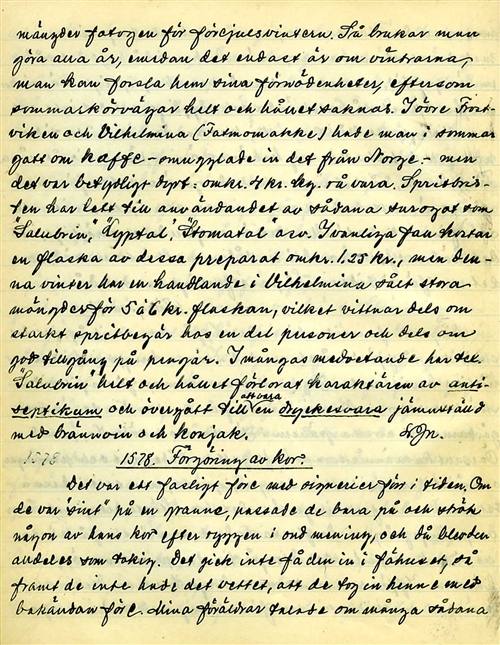 mängder fotogen för förejulsvintern. Så brukar man
göra alla år, emedan det endast är om vintrarna,
man kan forsla hem sina förnödenheter, eftersom
sommarkörvägar helt och hållet saknas. I övre Frost-
viken och Vilhelmina (Fatmomakke) hade man i sommar
gott om kaffe - insmugglade in det från Norge - men
det var betydligt dyrt: omkr. 4 kr. kg. rå vara. Spritbris-
ten har lett till användandet av sådana surogat som
"Salubrin", "Kyptal", "Stomatol" osv. I vanliga fall kostar
en flaska av dessa preparat omkr. 1.25 kr., men den-
na vinter har en handlande i Vilhelmina sålt stora
mängder för 5 à 6 kr. flaskan, vilket vittnar dels om
starkt spritbegär hos en del personer och dels om
god tillgång på pengar. I mångas medvetande har t.ex.
"Salubrin" helt och hållet förlorat karaktären av anti-
septikum och övergått till att vara en dryckesvara jämnställd
med brännvin och konjak.
1578 1578. Förgöring av kor.
Det var ett fasligt före med signerier förr i tiden. Om
de var "sint" på en granne, passade de bara på och strök
någon av hans kor efter ryggen i ond mening, och då blev den
alldeles som tokig. Det gick inte få den in i fähuset, så
framt de inte hade det vettet, att de tog in henne med
bakändan före. Mina föräldrar talade om många sådana